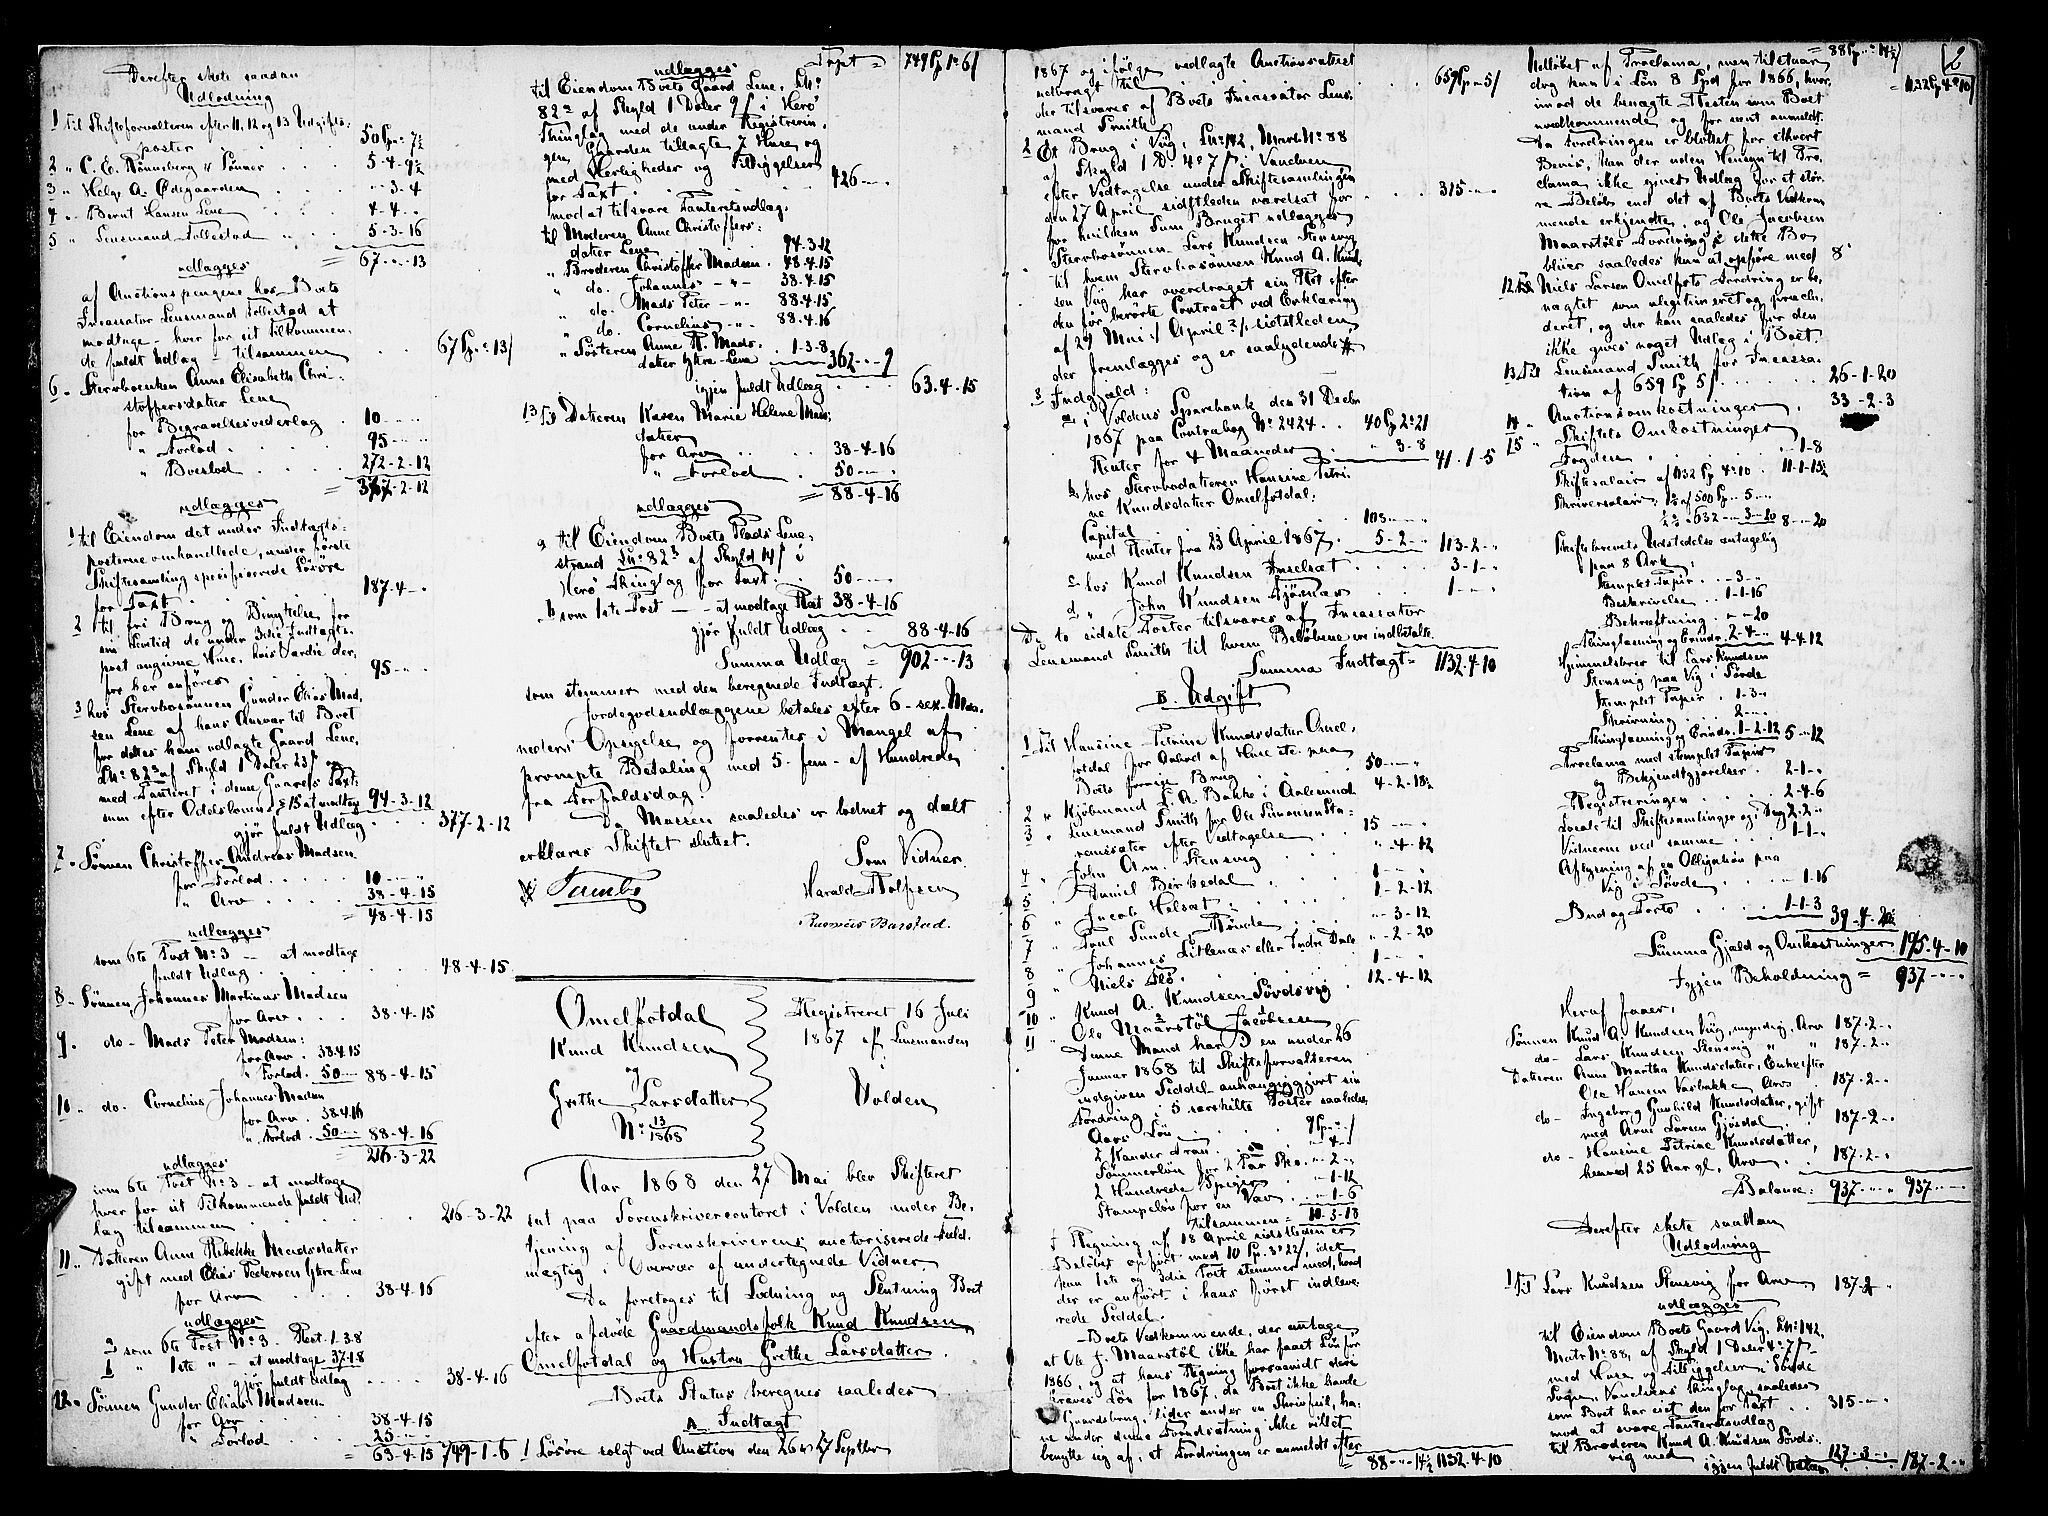 Derefter skete saadan
Udlodning
1 Til Skifteforvalteren efter 11, 12 og 13 Udgifts:
poster 50 Sp. " 7½
2 " C. E. Rönneberg & Sönner 5-4-9½
3 " Helge A. Ödegaarden "-3-4
4 " Bernt Hansen Lene 4-4-"
5 " Lensmand Follestad 5-3-16
= 67-"-13
udlægges
af Auctionspengene hos Boets
Incassator Lensmand Follestad at
modtage - hver for sit Tilkommen:
de fuldt Udlæg - tilsammen 67 Sp. " 13/
6 " Stervboenken Anne Elisabeth Chri-
stoffersdatter Lene
for Begravelsesvederlag 10-"-"
" Forlod 95-"-"
" Boeslod 272-2-12
= 377-2-12
udlægges
1 til Eiendom det under Indtægts:
posterne omhandlede, under första
Skiftesamling specificerede Lösöre
for Taxt 187-4-"
2 til fri Brug og Benyttelse for
sin Levetid de under 3die Indtægts-
post angivne Huse, hvis Værdie der-
for her anföres 95-"-"
3 hos Stervbosönnen Gunder Elias Mad,
sen Lene af hans Ansvar til Boet
for dettes ham udlagte Gaard Lene,
Lnr 82 af Skyld 1 Daler 23 ß og
med Panteret i denne Gaard Taxt:
sum efter Odelslovens § 15 at modtage 94-3-12
gjör fuldt Udlæg 377-2-12
7 " Sönnen Christoffer Andreas Madsen
for Forlod 10-"-"
" Arv 38-4-15
= 48-4-15
udlægges
som 6te Post No 3 - at modtage
fuldt Udlæg 48-4-15
8 " Sönnen Johannes Martinus Madsen
for Arv 38-4-15
9 " do - Mads Peter Madsen:
for Arv 38-4-15
" Forlod 50-"-" 88-4-15
10 " do - Cornelius Johannes Madsen
for Arv 38-4-16
" Forlod 50-"-" 88-4-16
= 216-3-22
udlægges
som 6te Post No 3 - at modtage
hver for sit Tilkommende fuldt Ud,
læg tilsammen 216-3-22
11 " Datteren Anne Rebekke Madsdatter
gift med Elias Pedersen Ytre Lene
for Arv 38-4-16
udlægges
a som 6te Post No 3. Rest 1-3-8
b " 1ste " - at modtage 37-1-8
gjör fuldt Udlæg 38-4-16
12 " Sönnen Gunder Elias Madsen
for Arv 38-4-15
" Forlod 25-"-"
= 63-4-15 749-1-6
Trpt = 749 Sp 1 " 6/
udlægges
til Eiendom Boets Gaard Lene, Lnr
82 af Skyld 1 Daler 9 ß i Herö
Thinglag med de under Registrerin,
gen Gaarden tillagte 7 Huse og
med Herligheder og Tilliggelser
for Taxt 426-"-"
mod at tilsvare Panteretsudlæg,
til Moderen Anne Christoffers:
datter Lene 94-3-12
" Broderen Christoffer Madsen 48-4-15
" do. Johannes - " - 38-4-15
" do. Mads Peter - " - 88-4-15
" do. Cornelius - " - 88-4-16
" Søsteren Anne R. Mads.
datter Ytre Lene 1-3-8
362-"-9
igjen fuldt Udlæg 63-4-15
13 Til Datteren Karen Marie Helene Mads:
datter
for Arv 38-4-16
" Forlod 50-"-"
= 88-4-16
udlægges
a til Eiendom Boets Plads Lene,
strand Lnr 82 af Skyld 14 ß i
Herö Thinglag for Taxt 50-"-"
b som 1ste Post - at modtage Rest 38-4-16
gjör fuldt Udlæg 88-4-16
Summa Udlæg = 902-"-13
som stemmer med den beregnede Indtægt.
Jordegodsudlæggene betales efter 6 - sex - Maa,
neders Opsigelse og forrentes i Mangel af
prompte Betaling med 5 - fem - af Hundrede
fra Forfaldsdag.
Da Massen saaledes er lodnet og deelt
erklæres Skiftet sluttet.
Som Vidner.
Harald Rolfsen
Rasmus Barstad.
Omelfotdal
Knud Knudsen
og
Grethe Larsdatter
No 13/1868
Registreret 16 Juli
1867 af Lensmanden
i
Volden
Aar 1868 den 27 Mai blev Skifteret
sat paa Sorenskrivercontoret i Volden under Be,
tjening af Sorenskriverens auctoriserede Fuld,
mægtig i Overvær af undertegnede Vidner
Da foretoges til Lodning og Slutning Boet
efter afdöde Gaardmandsfolk Knud Knudsen
Omelfotdal og Hustru Grethe Larsdatter.
Boets Status beregnes saaledes
A. Indtægt
1 Lösöre solgt ved Auction den 26 og 27 Septbr
1867 og ifölge vedlagte Auctionsforret
udbragt til 659 Sp " 5/
der tilsvares af Boets Incassator Lens:
mand Smith
2 Et Brug i Viig, Lnr 142, Matr No 88
af Skyld 1 D. 4 " 7 ß i Vanelven
efter Vedtagelse under Skiftesamlingen
den 27 April sidstleden værdsat for 315-"-"
for hvilken Sum Bruget udlægges
Stervbosönnen Lars Knudsen Stensvig
til hvem Stervbosönnen Knud A. Knud
sen Viig har overdraget sin Ret efter
den för berörte Contract ved Erklæring
af 27 Mai :/ April ?/: sidstleden
der fremlægges og er saalydende #
3 Indgjæld:
a i Voldens Sparebank den 31 Decbr
1867 paa Contrabog No 2424 40 Sp 2 " 21
Renter for 4 Maaneder "-3-8
41-1-5
b hos Stervbodatteren Hansine Petri:
ne Knudsdatter Omelfotdal:
Capital 108-"-"
med Renter fra 23 April 1867 5-2-" 113-2-"
c hos Knud Knudsen Inselsæt 3-1-"
d " John Knudsen 1-"-"
De to sidste Poster tilsvares af Incassator
Lensmand Smith til hvem Belöbene ere indbetalte
Summa Indtægt = 1132-4-10
B. Udgift
1 Til Hansine Petrine Knudsdatter Omel,
fotdal for Aabod af Huse etc. paa
Boets forrige Brug 50-"-"
2 " Kjöbmand L. A. Bakke i Aalesund 4-2-18½
3 " Lensmand Smith for Ole Simonsen Sta:
rensæter efter Vedtagelse 15-"-"
4 " John Am. Stensvig "-4-12
5 " Daniel Berkedal 1-"-"
6 " Jacob Helsæt 1-2-12
7 " Poul Sunde, Rövde "-3-12
8 " Johannes Littlenæs eller Indre Dale "-2-20
9 " Niels Aas 1-"-"
10 " Knud A. Knudsen Sövdsvig 12-4-12
11 " Ole Maarstöl Jacobsen
Denne Mand har i en under 26
Januar 1868 til Skifteforvalteren
indgiven Seddel anhængiggjort sin
Fordring i 5 særskilte Poster saaledes,
Aars Lön 9 Sp " /
2 Kander Tran "-4-"
Sömmerlön for 2 Par Sko "-2-"
2 Hundrede Spiger "-1-12
Stampelön for en Væv "-1-6
Tilsammen = 10-3-18
I Regning af 18 April sidstleden er
Belöbet opfört med 10 Sp. 3 " 22/, idet
kun 1ste og 3die Post stemmer med, hvad
der er anfört i hans först indleve:
rede Seddel.
Boets Vedkommende, der antage
at Ole J. Maarstöl ikke har faaet Lön for
1866, og at hans Regning forsaavidt dere
kræves Lön for 1867, da Boet ikke havde
Gaardsbrug, lider under en Skrivfeil, ha:
ne under denne Forudsætning ikke villet
benytte sig af, at Fordringen er anmeldt efter
= 88-"-14½ 1132-4-10
2
= 88 Sp " 14½/ = 1132 Sp 4 " 10/
Udlöbet af Proclama, men tilstaar
dog kun i Lön 8 Spd for 1866, hvor,
imod de benægte Resten som Boet
uvedkommende og for sent anmeldt.
Da Fordringen er blottet for ethvert
Bevis, kan der uden Hensyn til Pro,
clama ikke gives Udlæg for et stör:
re Belöb end det af Boets Vedkom
mende erkjendte, og Ole Jacobsen
Maarstöls Fordring i dette Bo
bliver saaledes kun at opföre med 8
12 Til Niels Larsen Omelfots Fordring er be,
nægtet som ulegitimeret og præclu,
deret, og der kan saaledes for den
ikke gives noget Udlæg i Boet.
13 Til Lensmand Smith for Incassa:
tion af 659 Sp 5/ 26-1-20
14 " Auctionsomkostninger 33-2-3
15 " Skiftets Omkostninger
Fogden "-1-8
Skiftesalair af 1132 Sp 4 " 10 11-1-15½
Skriversalair, 1% af 500 Sp - 5-"-"
½% " 632-"- 3-"-20 8-"-20
Skiftebrevets Udstedelse antagelig
paa 8 Ark:
Stemplet Papir "-3-"
Beskrivelse 1-1-16
Bekræftning "-"-20
Thinglæsning og Erindr. 2-4-" 4-4-12
Hjemmelsbrev til Lars Knudsen
Stensvig paa Vig i Sövde
Stemplet Papir 1-3-"
Skrivning 2-"-"
Thinglæsning og Erindr. 1-2-12 5-"-12
Proclama med stemplet Papir
og Bekjendtgjörelser 2-1-"
Registreringen 2-4-6
Locale til Skiftesamlinger og i Dag 2-2-"
Vidnerne ved samme 1-1-"
Aflysning af en Obligation paa
Vig i Sövde "-1-16
Bud og Porto 1-1-3 39-4-20½
Summa Gjæld og Omkostninger 195-4-10
Igjen Beholdning = 937-"-"
Heraf faaer:
Sönnen Knud A. Knudsen Viig, myndig, Arv 187-2-"
do - Lars Knudsen Stensvig " " 187-2-"
Datteren Anne Martha Knudsdatter, Enke efter
Ole Hansen Vasbakke Arv 187-2-"
do - Ingeborg Gunhild Knudsdatter, gift
med Arne Larsen Gjösdal 187-2-"
do - Hansine Petrine Knudsdatter,
henved 25 Aar gl., Arv 187-2-"
Balance: 937-"-" 937-"-"
Derefter skete saadan
Udlodning
1 Til Lars Knudsen Stensvig for Arv 187-2-"
udlægges
til Eiendom Boets Gaard Vig, Lnr 142,
Matr No 88, af Skyld 1 Daler 4 " 7 ß
med Huse og Tilliggelser i Sövde
Sogn, Vanelvens Thinglag, saaledes
som Boet har eiet den for Taxt 315-"-"
mod at svare Panteretsudlæg
til Broderen Knud A. Knudsen Sövds:
vig med 127-3-"
igjen fuldt Udlæg 187-2-"